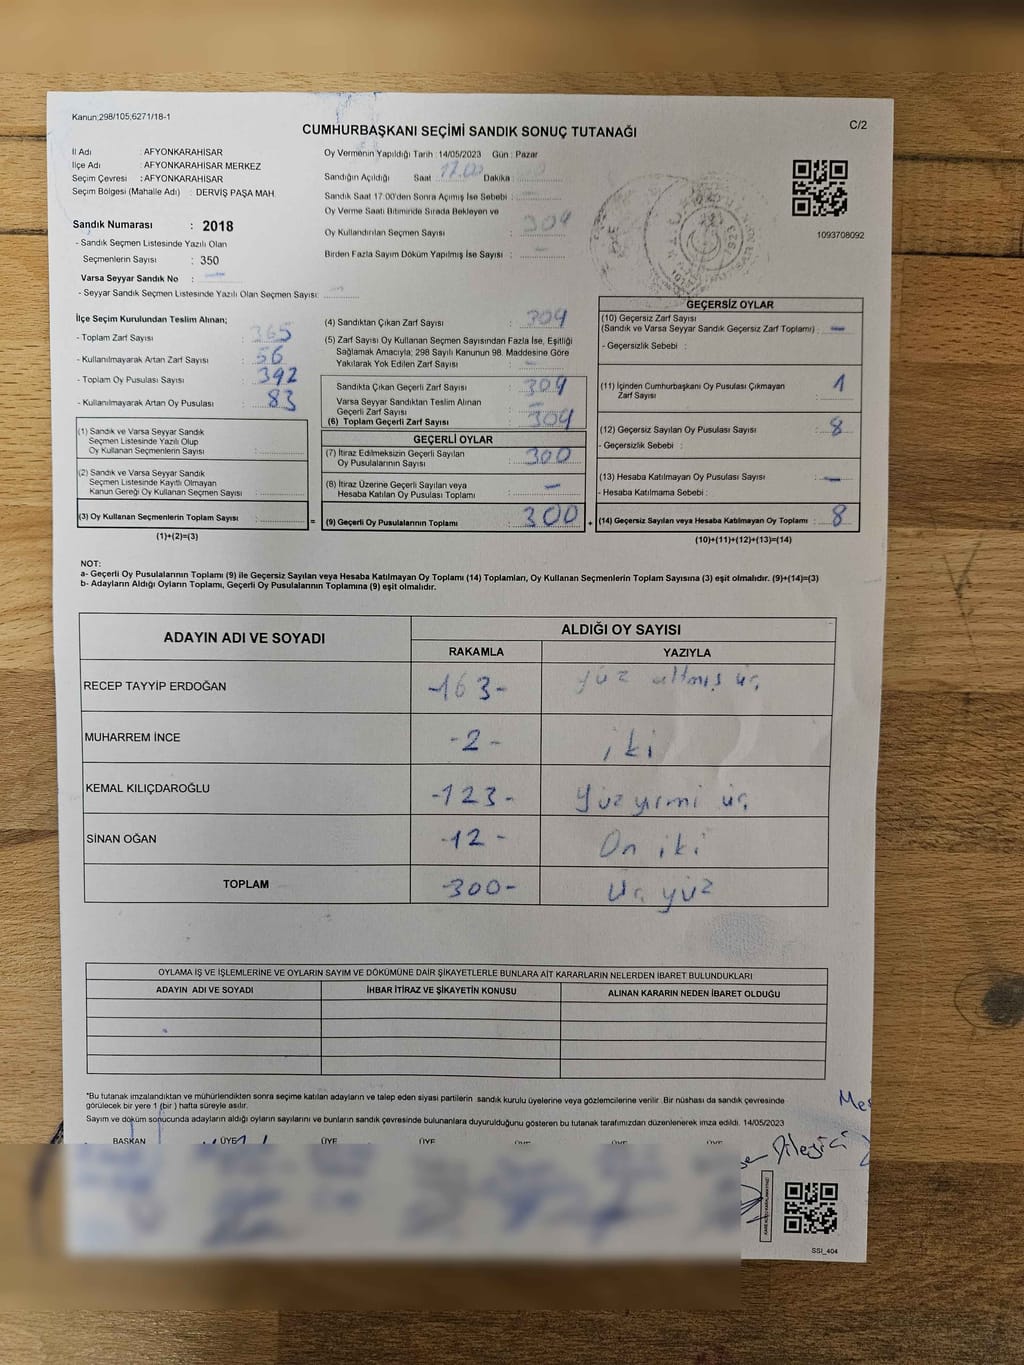 Kanun;298/105;6271/18-1
CUMHURBAŞKANI SEÇİMİ SANDIK SONUÇ TUTANAĞI
C/2
İl Adı : AFYONKARAHİSAR
İlçe Adı : AFYONKARAHİSAR MERKEZ
Seçim Çevresi : AFYONKARAHİSAR
Seçim Bölgesi (Mahalle Adı) : DERVİŞ PAŞA MAH.
Sandık Numarası : 2018
- Sandık Seçmen Listesinde Yazılı Olan
Seçmenlerin Sayısı : 350
Varsa Seyyar Sandık No : —
- Seyyar Sandık Seçmen Listesinde Yazılı Olan Seçmen Sayısı:
Oy Vermenin Yapıldığı Tarih : 14/05/2023 Gün : Pazar
Sandığın Açıldığı Saat 17.00 Dakika :
Sandık Saat 17.00'den Sonra Açımış İse Sebebi :
Oy Verme Saati Bitiminde Sırada Bekleyen ve
Oy Kullandırılan Seçmen Sayısı : 304
Birden Fazla Sayım Döküm Yapılmış İse Sayısı : —
1093708092
İlçe Seçim Kurulundan Teslim Alınan;
- Toplam Zarf Sayısı : 365
- Kullanılmayarak Artan Zarf Sayısı : 56
- Toplam Oy Pusulası Sayısı : 392
- Kullanılmayarak Artan Oy Pusulası : 83
(1) Sandık ve Varsa Seyyar Sandık
Seçmen Listesinde Yazılı Olup
Oy Kullanan Seçmenlerin Sayısı :
(2) Sandık ve Varsa Seyyar Sandık
Seçmen Listesinde Kayıtlı Olmayan
Kanun Gereği Oy Kullanan Seçmen Sayısı :
(3) Oy Kullanan Seçmenlerin Toplam Sayısı :
(1)+(2)=(3)
(4) Sandıktan Çıkan Zarf Sayısı : 309
(5) Zarf Sayısı Oy Kullanan Seçmen Sayısından Fazla İse, Eşitliği
Sağlamak Amacıyla; 298 Sayılı Kanunun 98. Maddesine Göre
Yakılarak Yok Edilen Zarf Sayısı : —
Sandıkta Çıkan Geçerli Zarf Sayısı : 309
Varsa Seyyar Sandıktan Teslim Alınan
Geçerli Zarf Sayısı : —
(6) Toplam Geçerli Zarf Sayısı : 309
GEÇERLİ OYLAR
(7) İtiraz Edilmeksizin Geçerli Sayılan
Oy Pusulalarının Sayısı : 300
(8) İtiraz Üzerine Geçerli Sayılan veya
Hesaba Katılan Oy Pusulası Toplamı : —
= (9) Geçerli Oy Pusulalarının Toplamı : 300
GEÇERSİZ OYLAR
(10) Geçersiz Zarf Sayısı
(Sandık ve Varsa Seyyar Sandık Geçersiz Zarf Toplamı) : —
- Geçersizlik Sebebi :
(11) İçinden Cumhurbaşkanı Oy Pusulası Çıkmayan
Zarf Sayısı : 1
(12) Geçersiz Sayılan Oy Pusulası Sayısı : 8
- Geçersizlik Sebebi :
(13) Hesaba Katılmayan Oy Pusulası Sayısı : —
- Hesaba Katılmama Sebebi :
+ (14) Geçersiz Sayılan veya Hesaba Katılmayan Oy Toplamı : 8
(10)+(11)+(12)+(13)=(14)
NOT:
a- Geçerli Oy Pusulalarının Toplamı (9) ile Geçersiz Sayılan veya Hesaba Katılmayan Oy Toplamı (14) Toplamları, Oy Kullanan Seçmenlerin Toplam Sayısına (3) eşit olmalıdır. (9)+(14)=(3)
b- Adayların Aldığı Oyların Toplamı, Geçerli Oy Pusulalarının Toplamına (9) eşit olmalıdır.
ADAYIN ADI VE SOYADI ALDIĞI OY SAYISI
RAKAMLA YAZIYLA
RECEP TAYYİP ERDOĞAN -163- yüz altmış üç
MUHARREM İNCE -2- iki
KEMAL KILIÇDAROĞLU -123- yüz yirmi üç
SİNAN OĞAN -12- On iki
TOPLAM -300- Üç yüz
OYLAMA İŞ VE İŞLEMLERİNE VE OYLARIN SAYIM VE DÖKÜMÜNE DAİR ŞİKAYETLERLE BUNLARA AİT KARARLARIN NELERDEN İBARET BULUNDUKLARI
ADAYIN ADI VE SOYADI İHBAR İTİRAZ VE ŞİKAYETİN KONUSU ALINAN KARARIN NEDEN İBARET OLDUĞU
*Bu tutanak imzalandıktan ve mühürlendikten sonra seçime katılan adayların ve talep eden siyasi partilerin sandık kurulu üyelerine veya gözlemcilerine verilir .Bir nüshası da sandık çevresinde
görülecek bir yere 1 (bir ) hafta süreyle asılır.
Sayım ve döküm sonucunda adayların aldığı oyların sayılarını ve bunların sandık çevresinde bulunanlara duyurulduğunu gösteren bu tutanak tarafımızdan düzenlenerek imza edildi. 14/05/2023
BAŞKAN ÜYE ÜYE ÜYE ÜYE ÜYE ÜYE
SSI_404